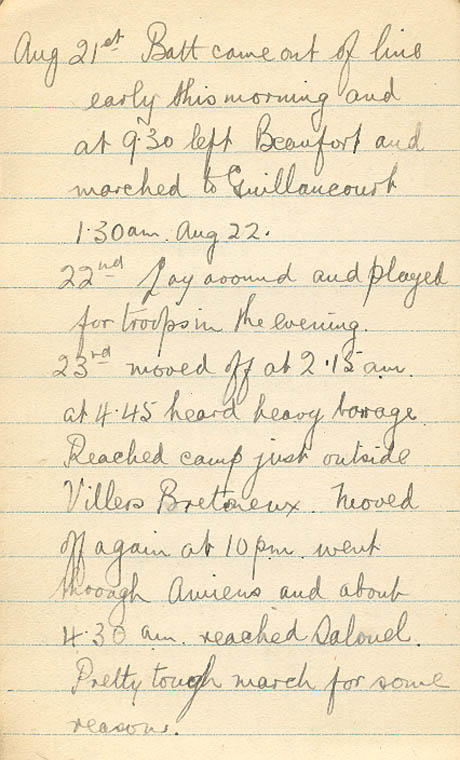 Aug 21st Batt came out of line
early this morning and
at 9.30 left Beaufort and
marched to Guillaucourt
1.30 am. Aug 22.
22nd Lay around and played
for troops in the evening.
23rd moved off at 2.15 am.
at 4.45 heard heavy barage
Reached camp just outside
Villers Bretoneux. Moved
off again at 10 pm. went
through Amiens and about
4.30 am. reached Salouel.
Pretty tough march for some
reason.